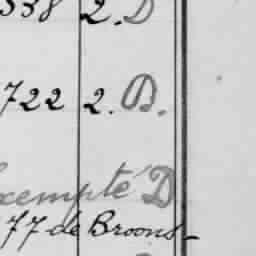 338 2. D
722 2. B.
exempté D
77 de Broons